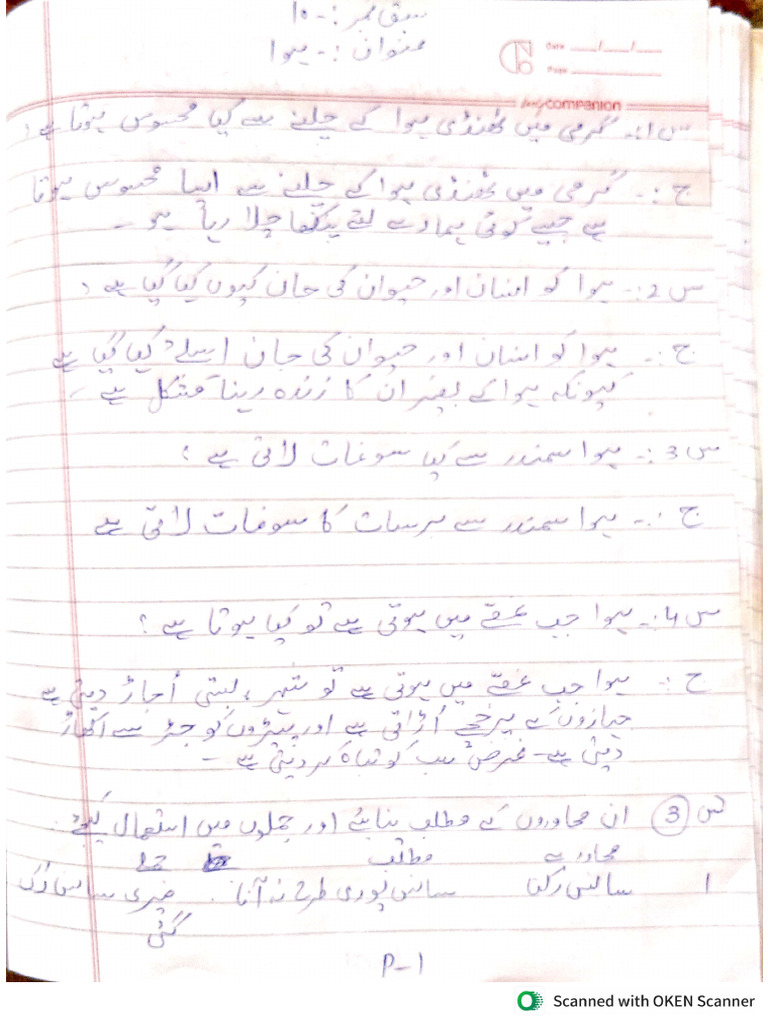 سبق نمبر :- ۱۰
عنوان :- ہوا
Date ___/___/___
Page
companion
س 1:- گرمی میں ٹھنڈی ہوا کے چلنے سے کیا محسوس ہوتا ہے؟
ج :- گرمی میں ٹھنڈی ہوا کے چلنے سے ایسا محسوس ہوتا
ہے جیسے کوئی ہمارے لئے پنکھا چلا رہا ہو -
س 2:- ہوا کو انسان اور حیوان کی جان کیوں کہا گیا ہے ؟
ج :- ہوا کو انسان اور حیوان کی جان اسلئے کہا گیا ہے
کیونکہ ہوا کے بغیر ان کا زندہ رہنا مشکل ہے -
س 3 :- ہوا سمندر سے کیا سوغات لاتی ہے ؟
ج :- ہوا سمندر سے برسات کا سوغات لاتی ہے
س 4:- ہوا جب غصے میں ہوتی ہے تو کیا ہوتا ہے ؟
ج :- ہوا جب غصے میں ہوتی ہے تو شہر ، بستی اُجاڑ دیتی ہے
جہازوں کے پرخچے اُڑاتی ہے اور پیڑوں کو جڑ سے اکھاڑ
دیتی ہے - غرض سب کو تباہ کر دیتی ہے -
س (3) ان محاوروں کے مطلب بتایئے اور جملوں میں استعمال کیجئے
محاورے مطلب جملے
1 سانس رکنا سانس پوری طرح نہ آنا . میری سانس رُک
گئی
P-1
Scanned with OKEN Scanner